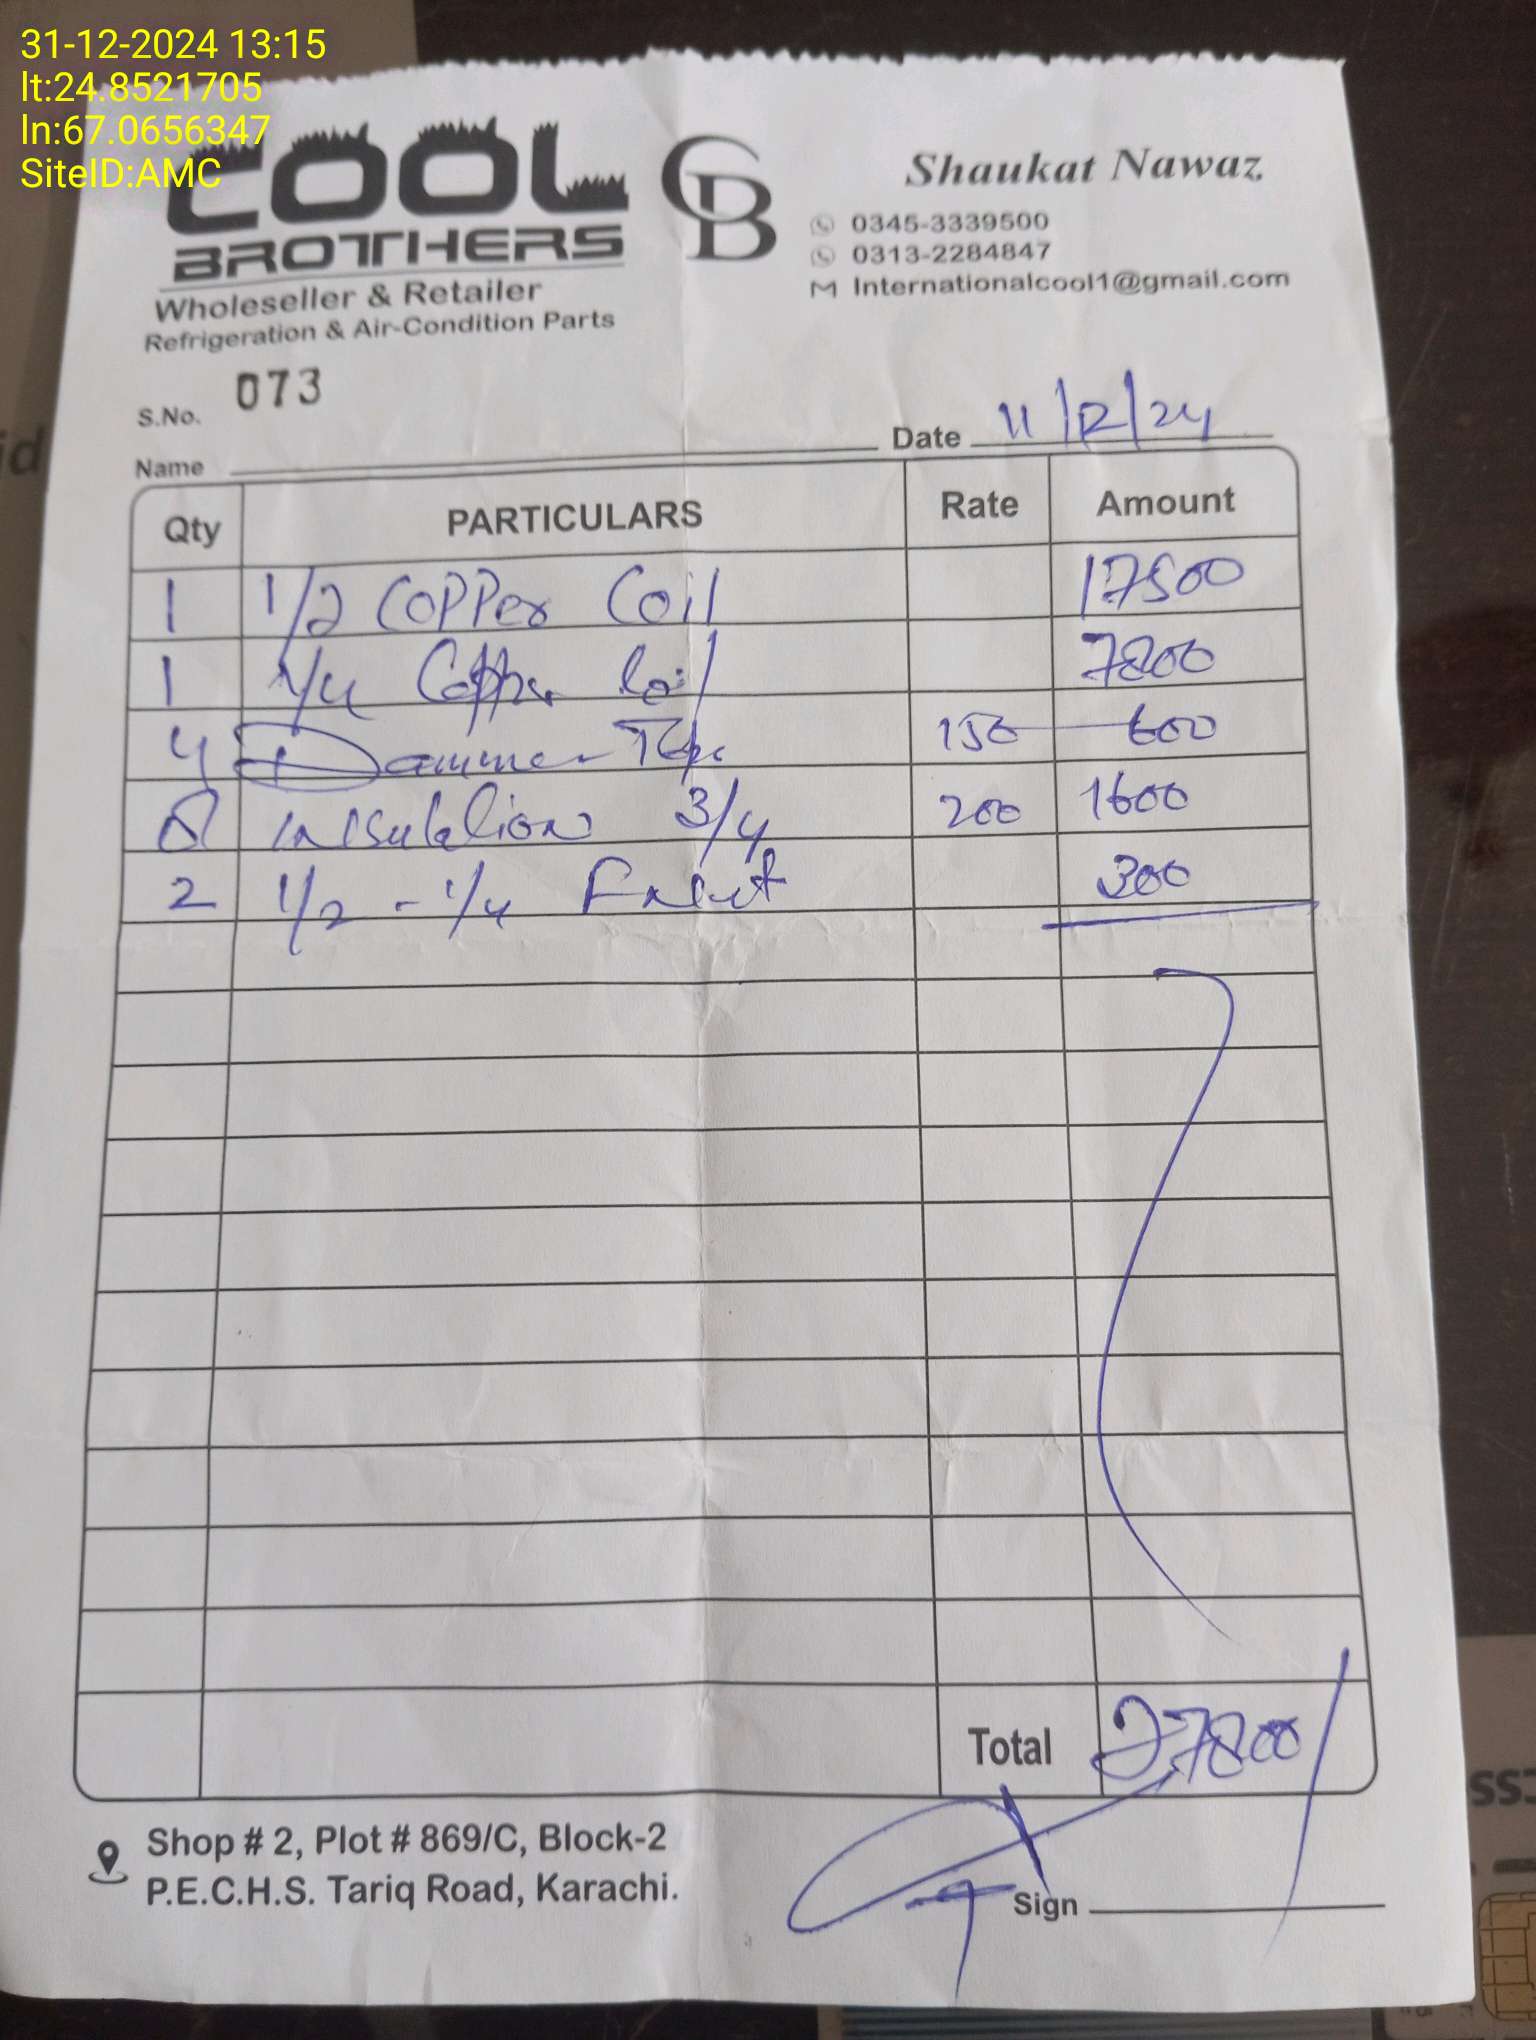 31-12-2024 13:15
lt:24.8521705
ln:67.0656347
SiteID:AMC
COOL
BROTHERS
Wholeseller & Retailer
Refrigeration & Air-Condition Parts
CB
Shaukat Nawaz
0345-3339500
0313-2284847
Internationalcool1@gmail.com
S.No. 073
Date 11/12/24
Name
Qty PARTICULARS Rate Amount
1 1/2 Copper Coil 17500
1 1/4 Copper Coil 7800
4 Dammer Tape 150 600
8 insulation 3/4 200 1600
2 1/2 - 1/4 300
Total 27800
Shop # 2, Plot # 869/C, Block-2
P.E.C.H.S. Tariq Road, Karachi.
Sign